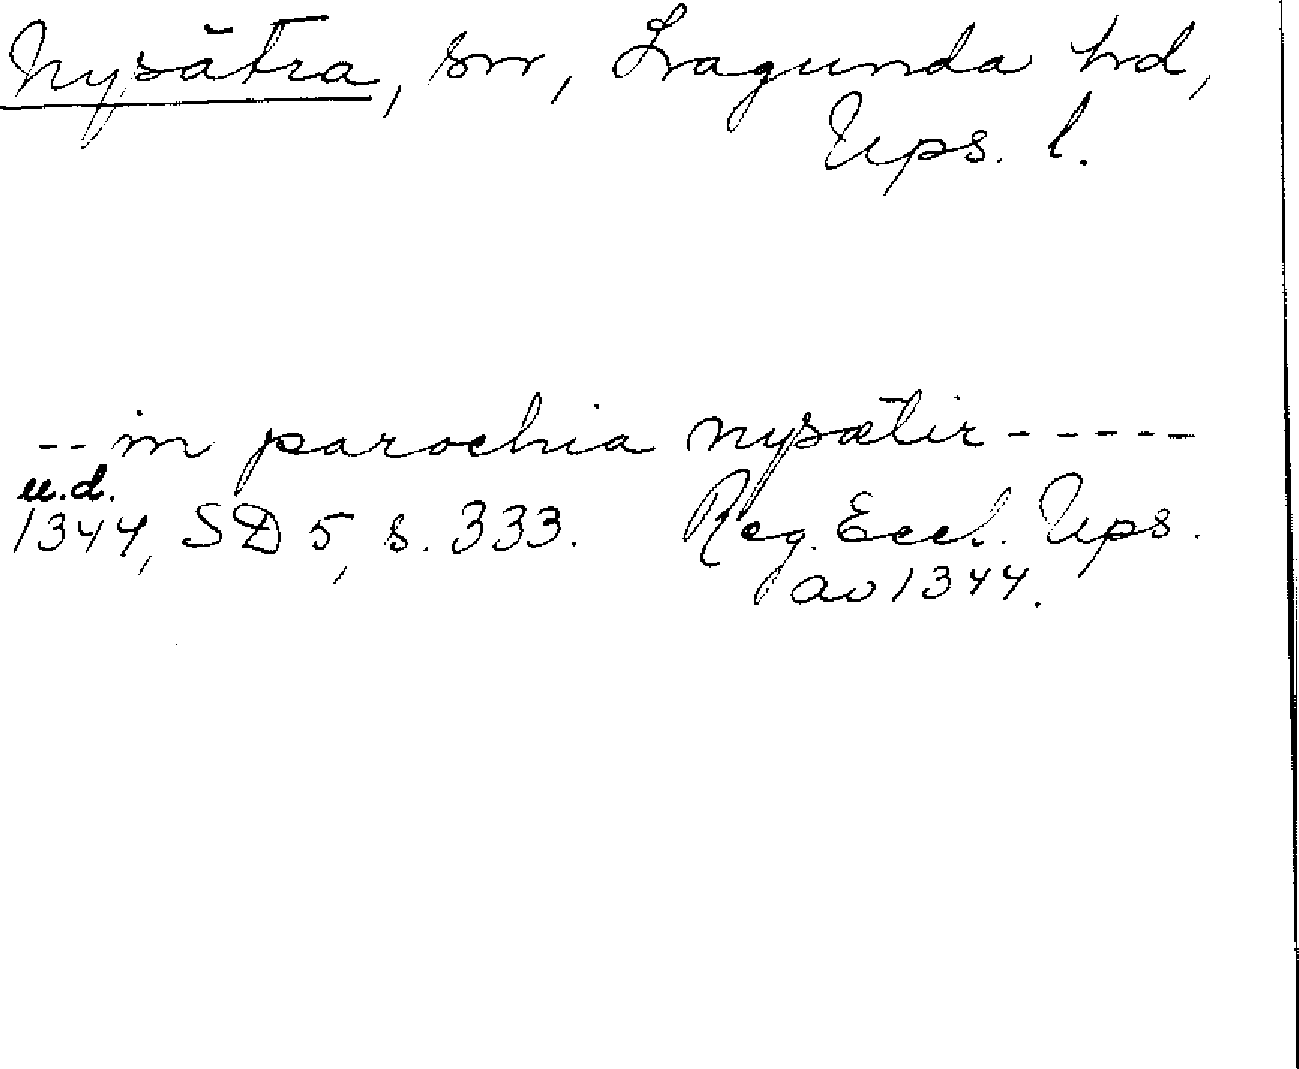 Nysätra, sn, Lagunda hd,
Ups. l.
-- in parochia nysætir -----
u.d.
1344, SD 5, s. 333. Reg. Eccl. Ups.
av 1344.